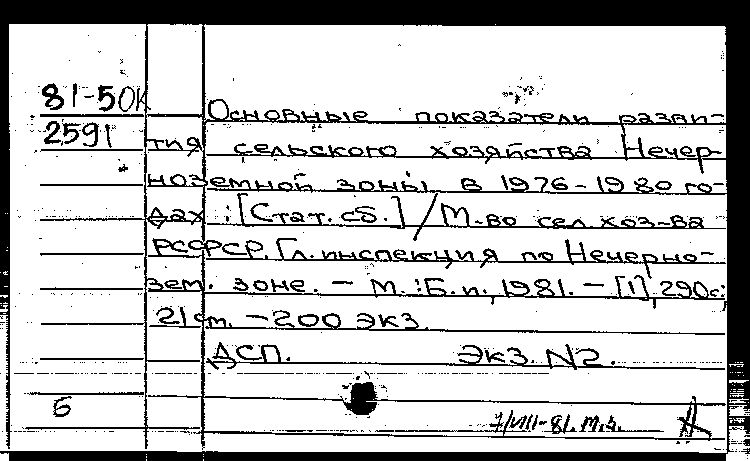 81-5ОК
2591
Основные показатели разви-
тия сельского хозяйства Нечер-
ноземной зоны в 1976-1980 го-
дах : [Стат. сб.] / М-во сел. хоз-ва
РСФСР. Гл. инспекция по Нечерно-
зем. зоне. - М. : Б. и., 1981. - [1], 290 с;
21 см. - 200 экз.
ДСП. Экз. N2.
Б
7/VIII-81. М.З.